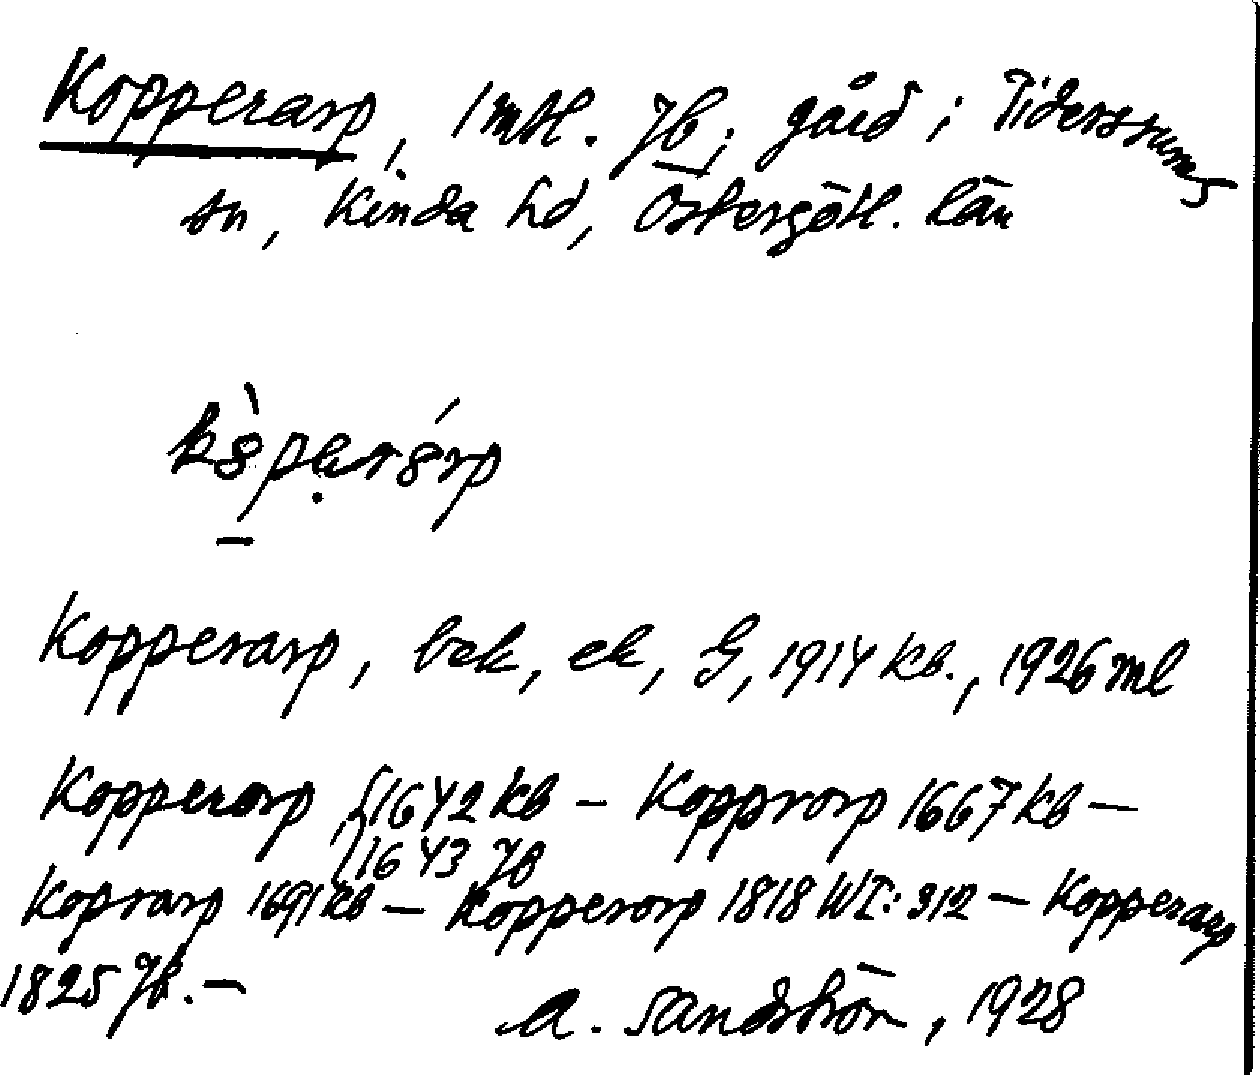 Kopperarp, 1 mtl. Jb; gård i Tidersrums
sn, Kinda hd, Östergötl. län
Kopperarp, bek, ek, G, 1914 kb., 1926 ml
Kopperorp {1642 kb – Kopprorp 1667 kb –
{1643 Jb
Koprarp 1691 kb – Kopperorp 1818 WT: 312 – Kopperarp
1825 Jb. –
A. Sandström, 1928